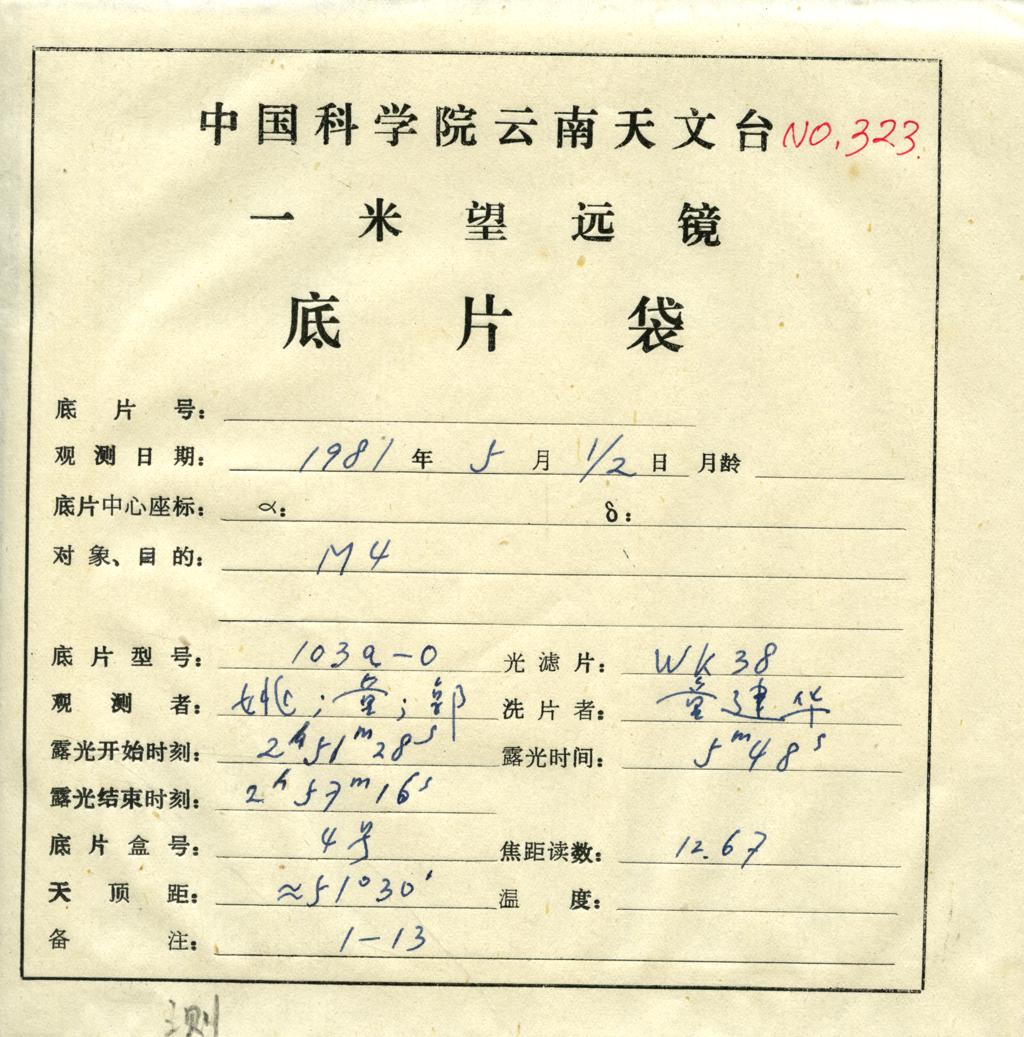 中国科学院云南天文台 NO.323
一米望远镜
底片袋
底片号:
观测日期: 1981年5月1/2日 月龄
底片中心座标: α: δ:
对象、目的: M4
底片型号: 103a-O 光滤片: WK38
观测者: 姚;童;郭 洗片者: 童建华
露光开始时刻: 2h51m28s 露光时间: 5m48s
露光结束时刻: 2h57m16s
底片盒号: 4号 焦距读数: 12.67
天顶距: ≈51°30′ 温度:
备注: 1-13
测